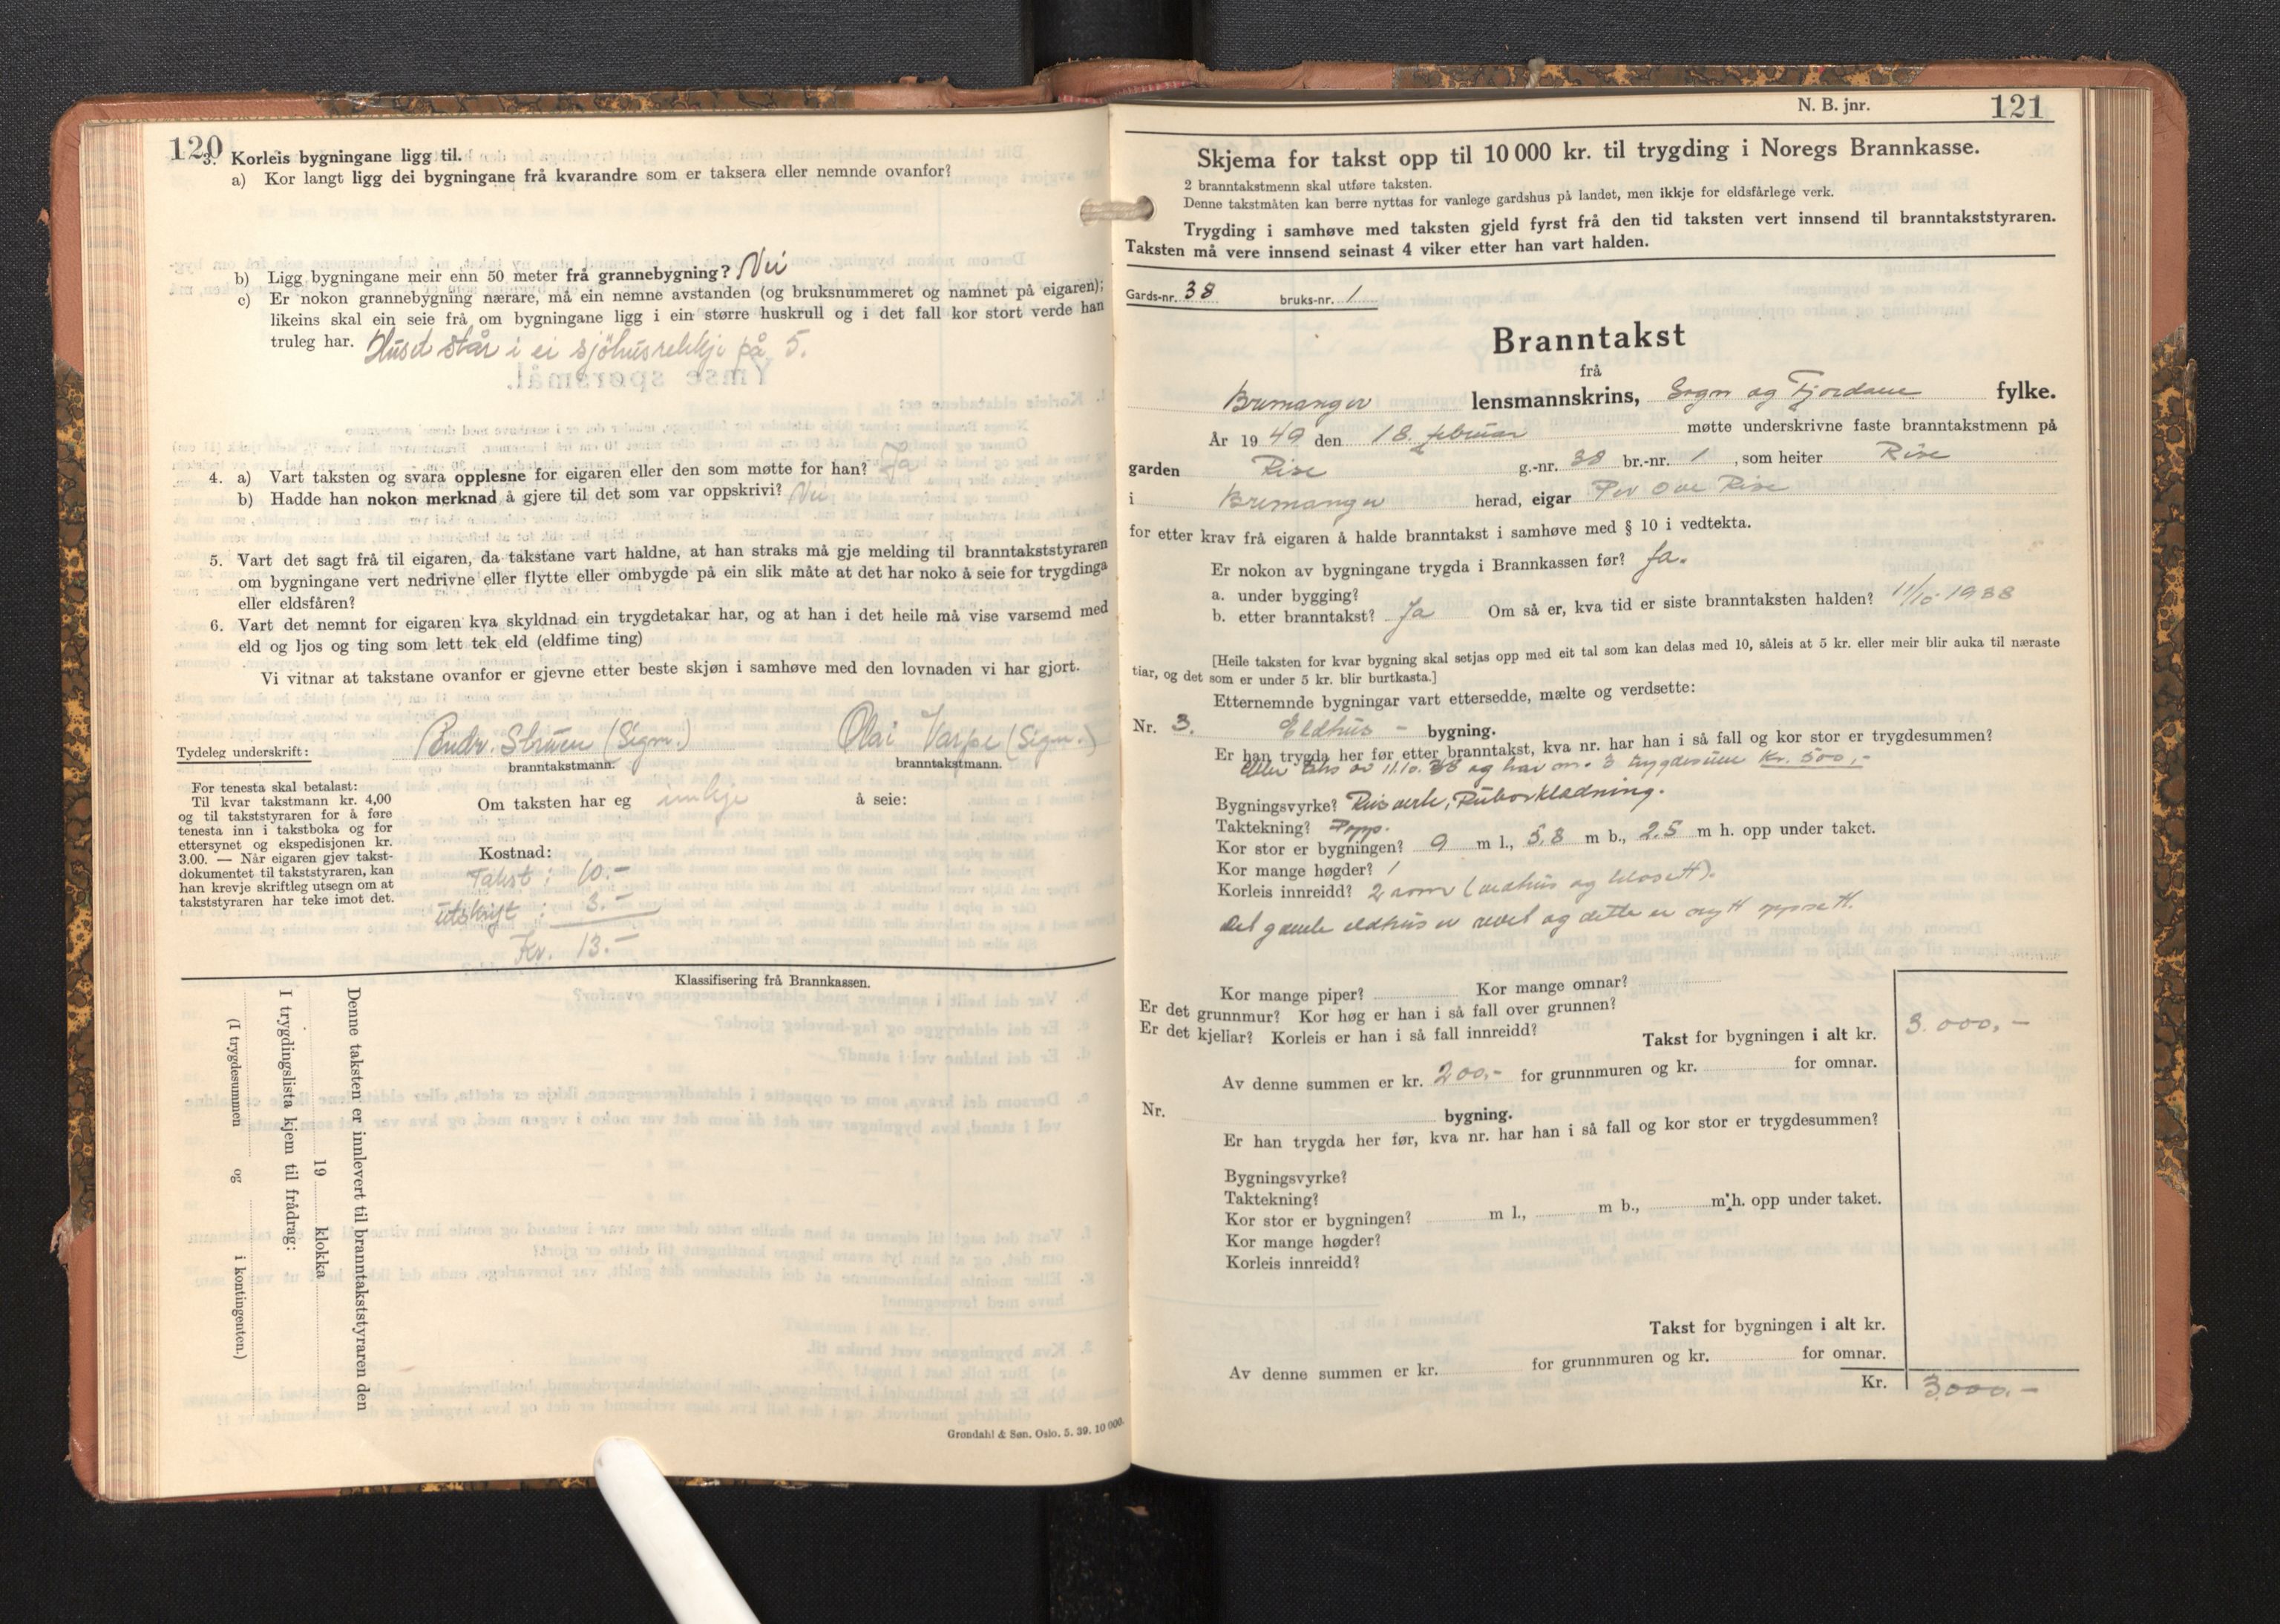 120
3. Korleis bygningane ligg til.
a) Kor langt ligg dei bygningane frå kvarandre som er taksera eller nemnde ovanfor?
b) Ligg bygningane meir enn 50 meter frå grannebygning? Nei
c) Er nokon grannebygning nærare, må ein nemne avstanden (og bruksnummeret og namnet på eigaren);
likeins skal ein seie frå om bygningane ligg i ein større huskrull og i det fall kor stort verde han
truleg har. Huset står i ei sjöhusrekkje på 5.
4. a) Vart taksten og svara opplesne for eigaren eller den som møtte for han? Ja
b) Hadde han nokon merknad å gjere til det som var oppskrivi? Nei
5. Vart det sagt frå til eigaren, da takstane vart haldne, at han straks må gje melding til branntakststyraren
om bygningane vert nedrivne eller flytte eller ombygde på ein slik måte at det har noko å seie for trygdinga
eller eldsfåren?
6. Vart det nemnt for eigaren kva skyldnad ein trygdetakar har, og at han i det heile må vise varsemd med
eld og ljos og ting som lett tek eld (eldfime ting)
Vi vitnar at takstane ovanfor er gjevne etter beste skjøn i samhøve med den lovnaden vi har gjort.
Tydeleg underskrift: (Sign.) Olai Varpe (Sign.)
branntakstmann. branntakstmann.
For tenesta skal betalast:
Til kvar takstmann kr. 4,00
og til takststyraren for å føre
tenesta inn i takstboka og for
ettersynet og ekspedisjonen kr.
3.00. — Når eigaren gjev takst-
dokumentet til takststyraren, kan
han krevje skriftleg utsegn om at
takststyraren har teke imot det.
Om taksten har eg innkje å seie:
Kostnad:
Takst: 10.-
Utskrift: 3.-
Kr. 13.-
Klassifisering frå Brannkassen.
Denne taksten er innlevert til branntakststyraren den
19 klokka
I trygdingslista kjem til frådrag:
(I trygdesummen og i kontingenten.)
Grøndahl & Søn. Oslo. 5. 39. 10 000.
N. B. jnr. 121
Skjema for takst opp til 10 000 kr. til trygding i Noregs Brannkasse.
2 branntakstmenn skal utføre taksten.
Denne takstmåten kan berre nyttas for vanlege gardshus på landet, men ikkje for eldsfårlege verk.
Trygding i samhøve med taksten gjeld fyrst frå den tid taksten vert innsend til branntakststyraren.
Taksten må vere innsend seinast 4 viker etter han vart halden.
Gards-nr. 38 bruks-nr. 1
Branntakst
frå
Bremanger lensmannskrins, Sogn og Fjordane fylke.
År 1949 den 18. februar møtte underskrivne faste branntakstmenn på
garden Rise g.-nr. 38 br.-nr. 1, som heiter Rise
i Bremanger herad, eigar Per Ove Rise
for etter krav frå eigaren å halde branntakst i samhøve med § 10 i vedtekta.
Er nokon av bygningane trygda i Brannkassen før? Ja.
a. under bygging?
b. etter branntakst? Ja Om så er, kva tid er siste branntaksten halden? 11/10-1938
[Heile taksten for kvar bygning skal setjas opp med eit tal som kan delas med 10, såleis at 5 kr. eller meir blir auka til næraste
tiar, og det som er under 5 kr. blir burtkasta.]
Etternemnde bygningar vart ettersedde, mælte og verdsette:
Nr. 3. Eldhus - bygning.
Er han trygda her før etter branntakst, kva nr. har han i så fall og kor stor er trygdesummen?
av 11.10.38 og har nr. 3 trygdesum Kr. 500,-
Bygningsvyrke? Reisverk,
Taktekning? Papp.
Kor stor er bygningen? 9 m l., 5,8 m b., 2,5 m h. opp under taket.
Kor mange høgder? 1
Korleis innreidd? 2 rom (vedhus og klosett).
Det gamle eldhus er revet og dette er nytt oppsett.
Kor mange piper? Kor mange omnar?
Er det grunnmur? Kor høg er han i så fall over grunnen?
Er det kjeliar? Korleis er han i så fall innreidd?
Takst for bygningen i alt kr. 3.000,-
Av denne summen er kr. 200,- for grunnmuren og kr. for omnar.
Nr. bygning.
Er han trygda her før, kva nr. har han i så fall og kor stor er trygdesummen?
Bygningsvyrke?
Taktekning?
Kor stor er bygningen? m l., m b., m h. opp under taket.
Kor mange høgder?
Korleis innreidd?
Takst for bygningen i alt kr.
Av denne summen er kr. for grunnmuren og kr. for omnar.
Kr. 3.000.-